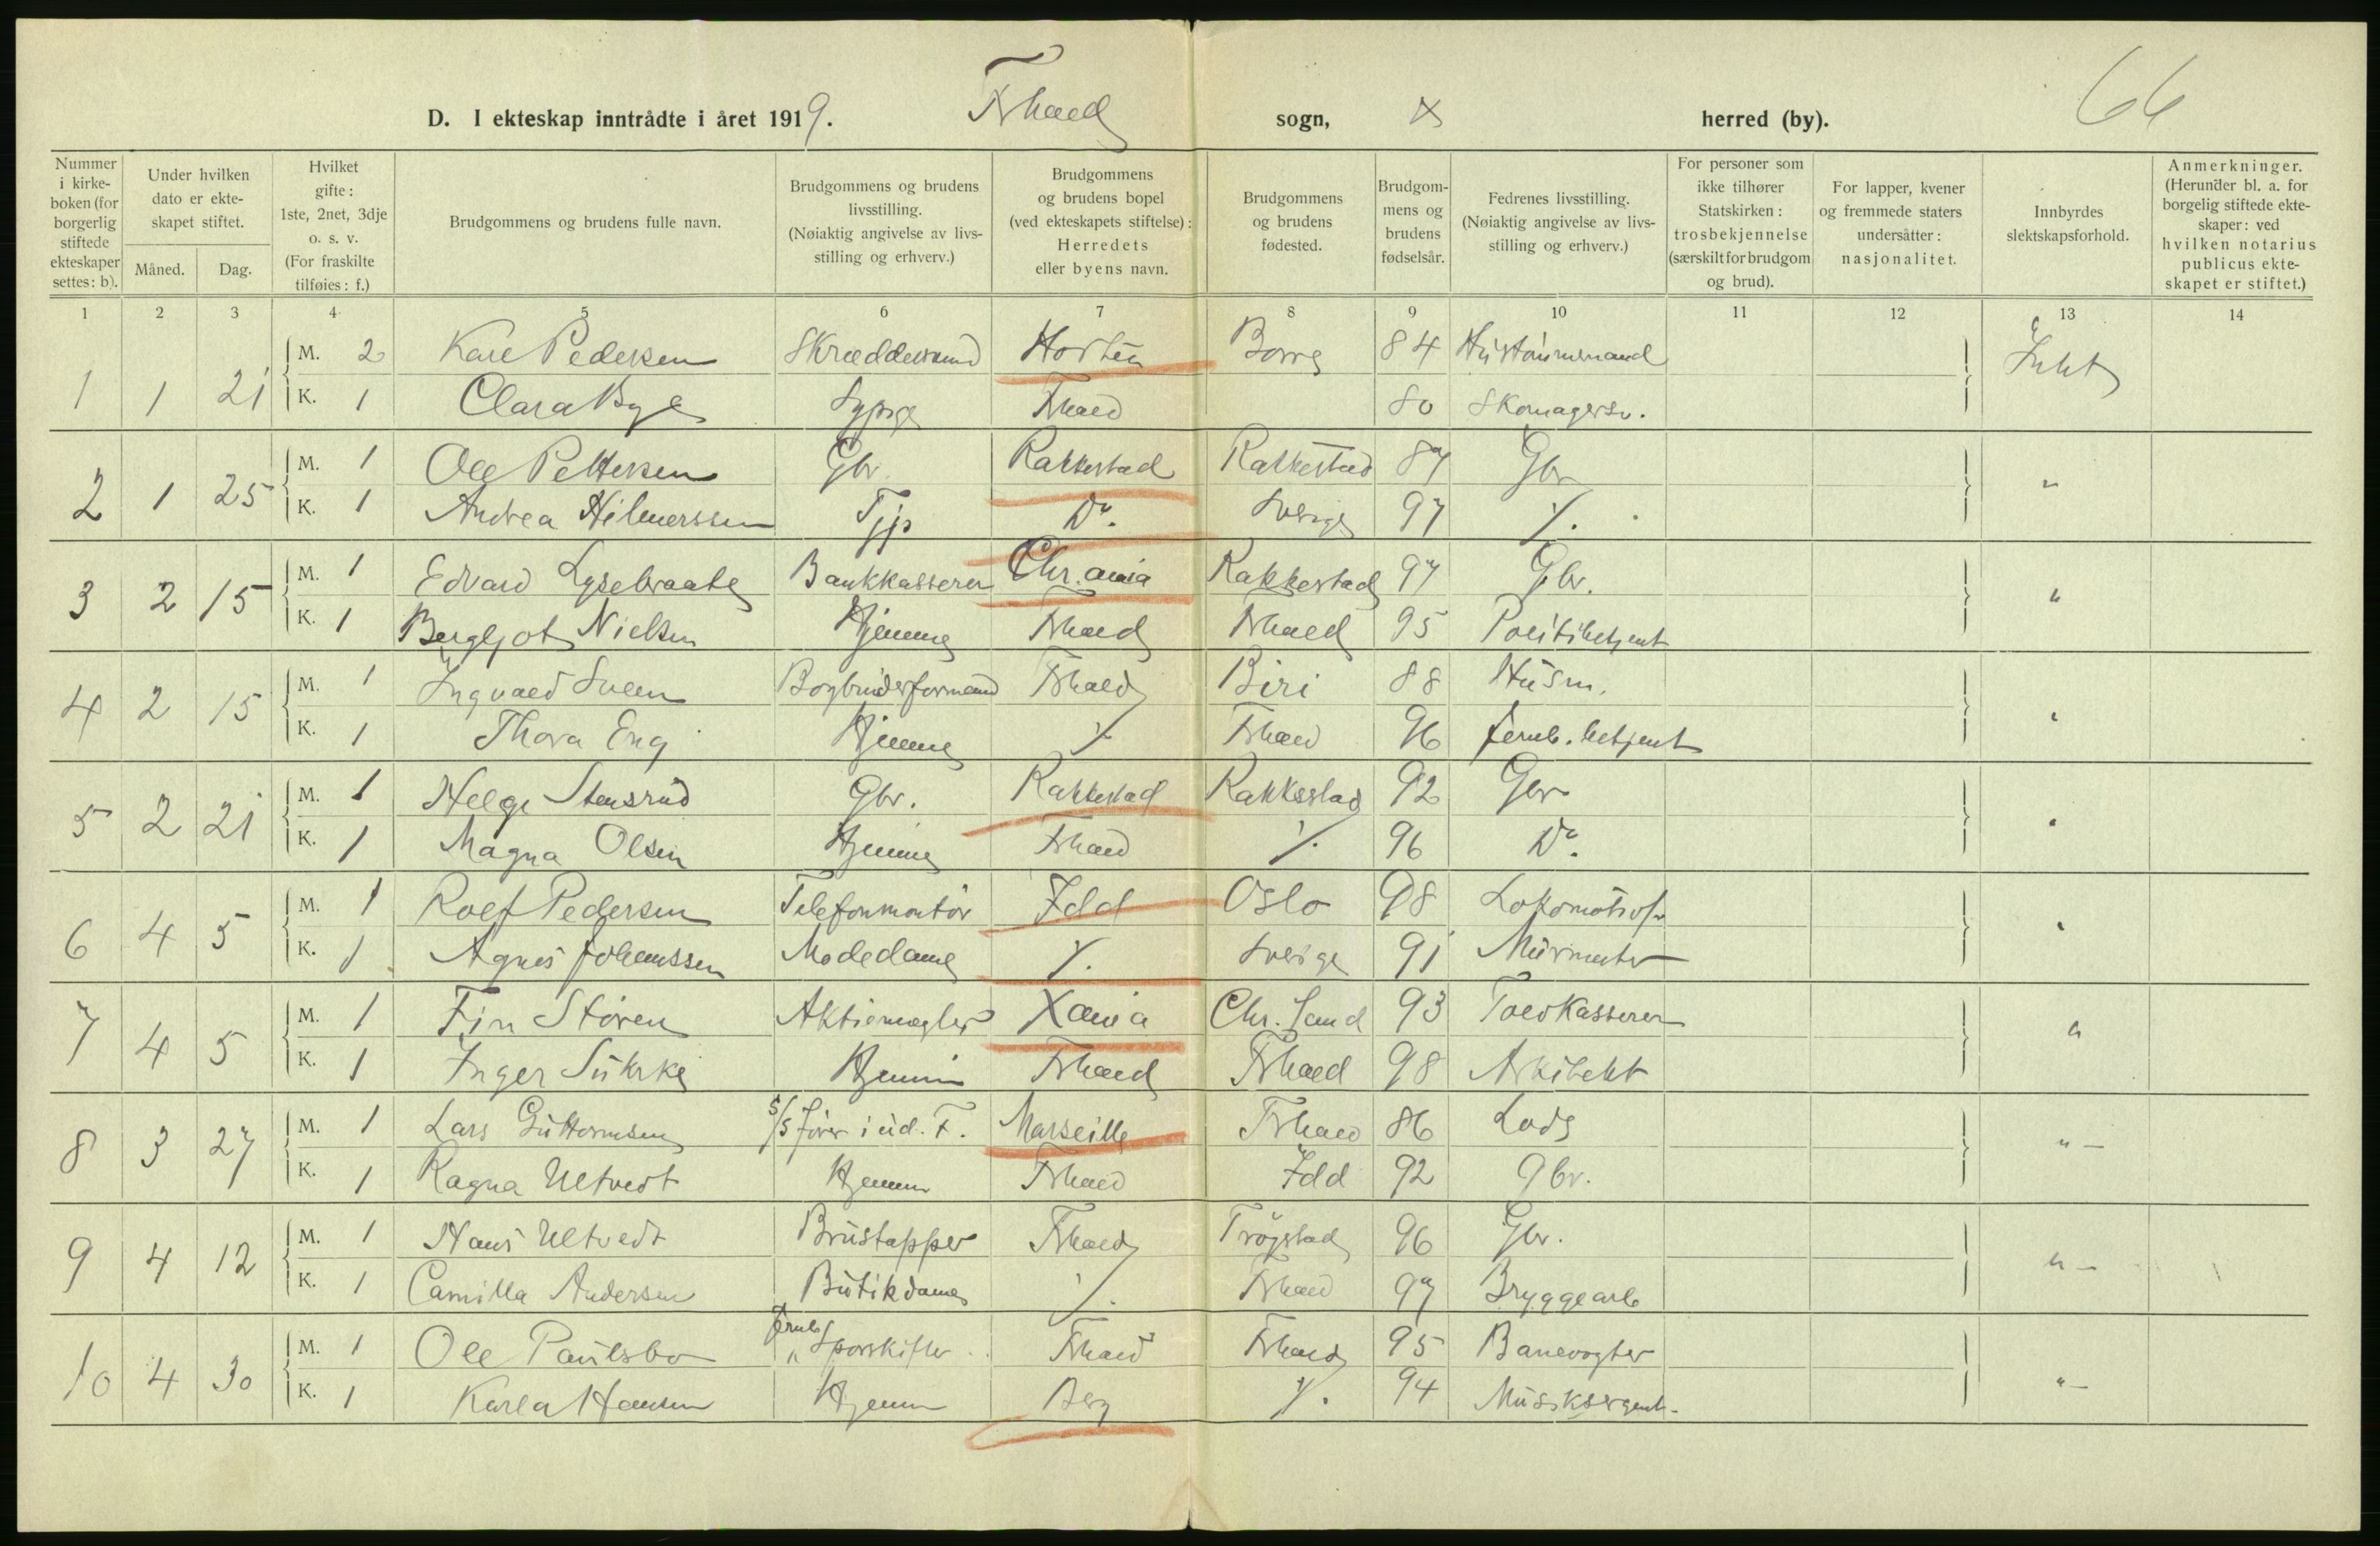 66
D. I ekteskap inntrådte i året 1919. Frhald sogn, herred (by).
Nummer i kirkeboken (for borgerlig stiftede ekteskaper settes: b).
Under hvilken dato er ekteskapet stiftet.
Måned. Dag.
Hvilket gifte: 1ste, 2net, 3dje o. s. v. (For fraskilte tilføies: f.)
Brudgommens og brudens fulle navn.
Brudgommens og brudens livsstilling. (Nøiaktig angivelse av livsstilling og erhverv.)
Brudgommens og brudens bopel (ved ekteskapets stiftelse): Herredets eller byens navn.
Brudgommens og brudens fødested.
Brudgommens og brudens fødselsår.
Fedrenes livsstilling. (Nøiaktig angivelse av livsstilling og erhverv.)
For personer som ikke tilhører Statskirken: trosbekjennelse (særskilt for brudgom og brud).
For lapper, kvener og fremmede staters undersåtter: nasjonalitet.
Innbyrdes slektskapsforhold.
Anmerkninger. (Herunder bl. a. for borgelig stiftede ekteskaper: ved hvilken notarius publicus ekteskapet er stiftet.)
1 2 3 4 5 6 7 8 9 10 11 12 13 14
1 1 21 M. 2 Kare Pedersen Skræddersvend Horten Borre 84 Hustømmermand Intet
K. 1 Clara Bye Sypige Frhald 80 Skomagersv.
2 1 25 M. 1 Ole Pettersen Gbr. Rakkestad Rakkestad 87 Gbr "
K. 1 Andrea Hilmerssen Tjp Do. Sverige 97 ⁒
3 2 15 M. 1 Edvard Lysebraate Bankkasserer Chr.ania Rakkestad 97 Gbr. "
K. 1 Bergljot Nielsen Hjemme Frhald Frhald 95 Politibetjent
4 2 15 M. 1 Ingvald Sveen Bogbinderformand Frhald Biri 88 Husm. "
K. 1 Thora Eng Hjemme ⁒ Frhald 96 Jernb.betjent
5 2 21 M. 1 Helge Stensrud Gbr. Rakkestad Rakkestad 92 Gbr "
K. 1 Magna Olsen Hjemme Frhald ⁒ 96 Do.
6 4 5 M. 1 Rolf Pedersen Telefonmontør Idd Oslo 98 Lokomotivf. "
K. 1 Agnes Johanssen Modedame ⁒ Sverige 91 Murmester
7 4 5 M. 1 Fin Støren Aktiemegler Xania Chr.sand 93 Toldkasserer "
K. 1 Inger Sührke Hjemme Frhald Frhald 98 Arkitekt
8 3 27 M. 1 Lars Guttormsen S/S fører i ud. F. Marseille Frhald 86 Lods " –
K. 1 Ragna Ultvedt Hjemme Frhald Idd 92 Gbr.
9 4 12 M. 1 Hans Ultvedt Brustapper Frhald Trøgstad 96 Gbr. " –
K. 1 Camilla Andersen Butikdame ⁒ Frhald 97 Bryggearb
10 4 30 M. 1 Ole Paulsbo Jernb. Sporskifter Frhald Frhald 95 Banevogter " –
K. 1 Karla Hansen Hjemme Berg ⁒ 94 Musiksergent.